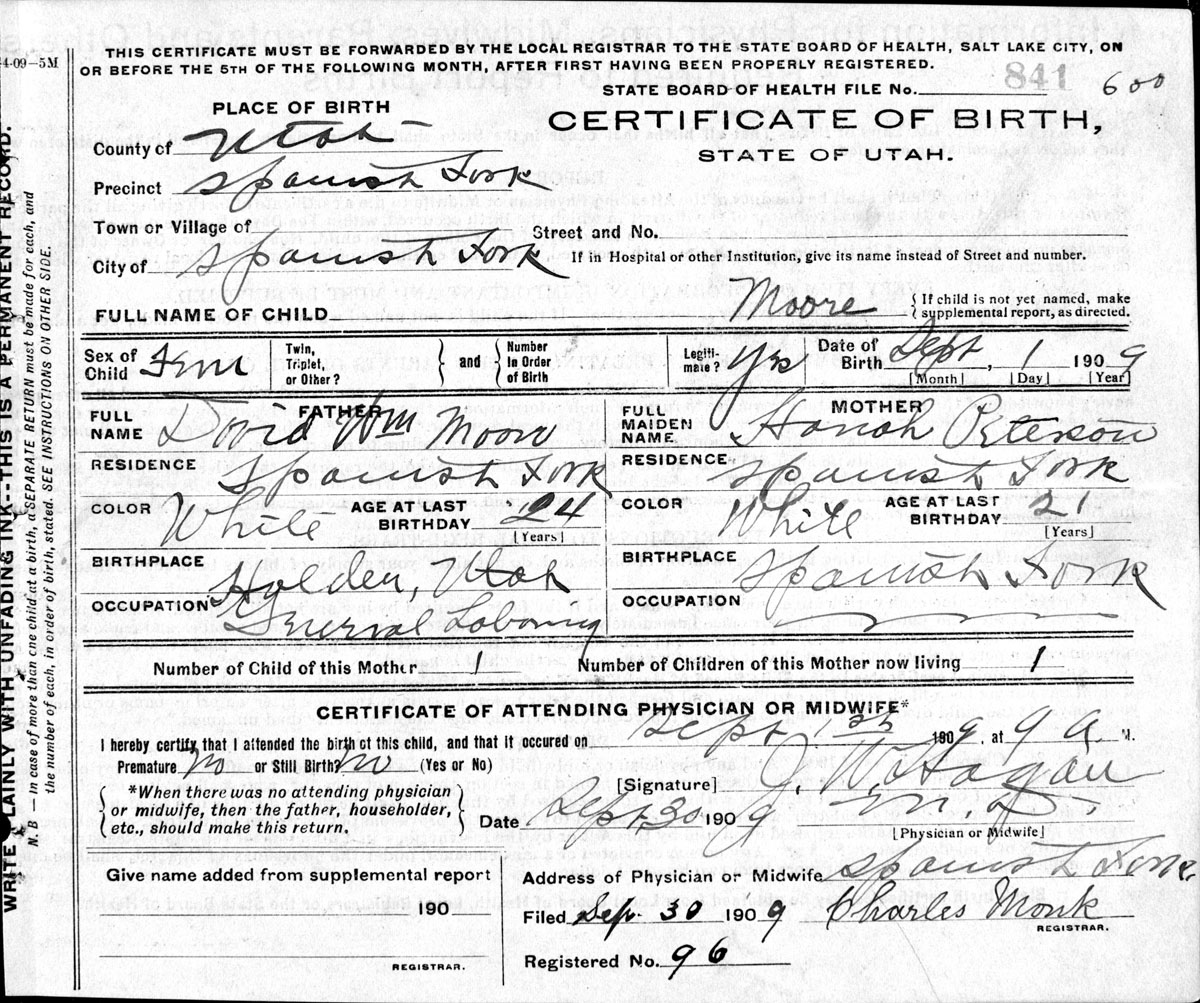 4-09-5M
THIS CERTIFICATE MUST BE FORWARDED BY THE LOCAL REGISTRAR TO THE STATE BOARD OF HEALTH, SALT LAKE CITY, ON
OR BEFORE THE 5TH OF THE FOLLOWING MONTH, AFTER FIRST HAVING BEEN PROPERLY REGISTERED.
STATE BOARD OF HEALTH FILE No. 841 600
PLACE OF BIRTH
CERTIFICATE OF BIRTH,
STATE OF UTAH.
County of Utah
Precinct Spanish Fork
Town or Village of
Street and No.
City of Spanish Fork
If in Hospital or other Institution, give its name instead of Street and number.
FULL NAME OF CHILD Moore { If child is not yet named, make
supplemental report, as directed.
Sex of Child Fem Twin, Triplet, or Other? } and { Number in Order of Birth Legiti-mate? Yes Date of Birth Sept, 1 1909
[Month] [Day] [Year]
FATHER
FULL NAME David Wm Moore
RESIDENCE Spanish Fork
COLOR White AGE AT LAST BIRTHDAY 24 [Years]
BIRTHPLACE Holden, Utah
OCCUPATION General Laboring
MOTHER
FULL MAIDEN NAME Hanah Peterson
RESIDENCE Spanish Fork
COLOR White AGE AT LAST BIRTHDAY 21 [Years]
BIRTHPLACE Spanish Fork
OCCUPATION
Number of Child of this Mother 1 Number of Children of this Mother now living 1
CERTIFICATE OF ATTENDING PHYSICIAN OR MIDWIFE*
I hereby certify that I attended the birth of this child, and that it occured on Sept 1st 1909, at 9 a. M.
Premature no or Still Birth? no (Yes or No)
[Signature] J. W. Hagan
{ *When there was no attending physician
or midwife, then the father, householder,
etc., should make this return. }
Date Sept 30 1909 M D.
[Physician or Midwife]
Give name added from supplemental report
190
REGISTRAR.
Address of Physician or Midwife Spanish Fork.
Filed Sep. 30 1909 Charles Monk
REGISTRAR.
Registered No. 96
WRITE PLAINLY WITH UNFADING INK--THIS IS A PERMANENT RECORD.
N. B — In case of more than one child at a birth, a SEPARATE RETURN must be made for each, and
the number of each, in order of birth, stated. SEE INSTRUCTIONS ON OTHER SIDE.